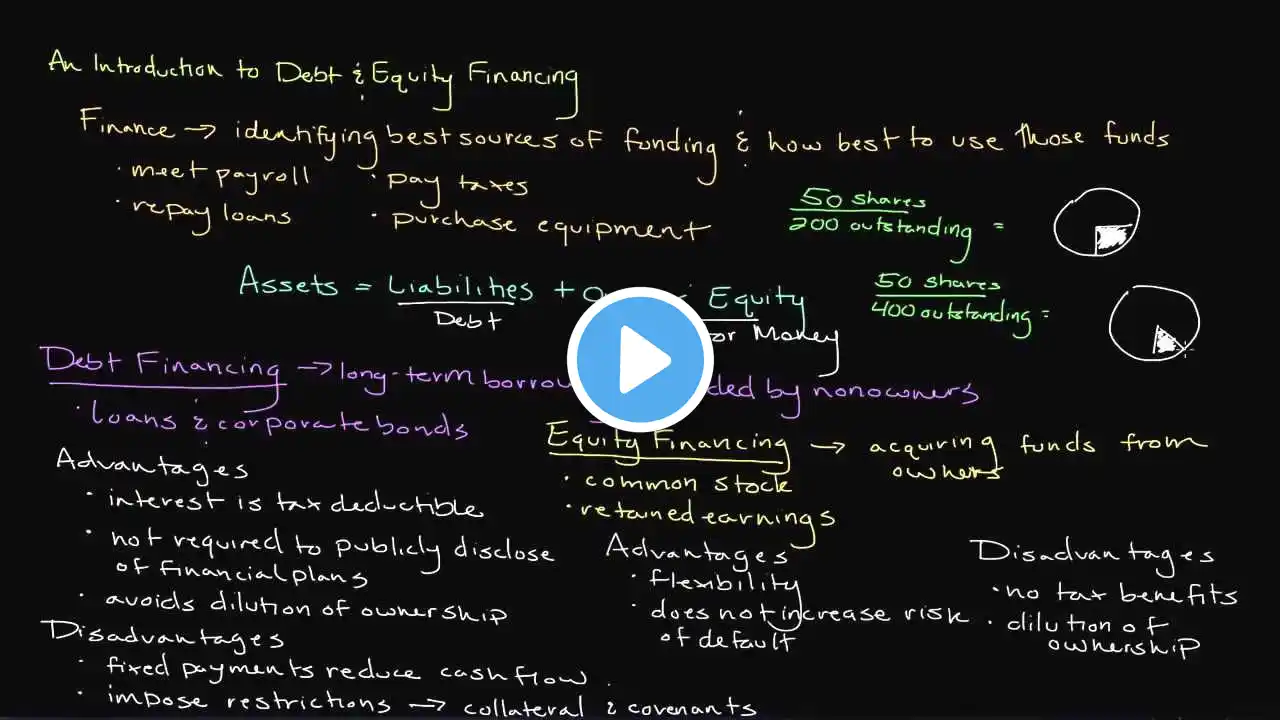 An Introduction to Debt & Equity Financing
Finance → identifying best sources of funding & how best to use those funds
· meet payroll · pay taxes
· repay loans · purchase equipment
50 shares
200 outstanding =
Assets = Liabilities + Equity
50 shares
400 outstanding =
Debt or Money
Debt Financing → long-term by nonowners
· loans & corporate bonds
Equity Financing → acquiring funds from
owners
· common stock
· retained earnings
Advantages
· interest is tax deductible
· not required to publicly disclose
of financial plans
· avoids dilution of ownership
Advantages
· flexibility
· does not increase risk
of default
Disadvantages
· no tax benefits
· dilution of
ownership
Disadvantages
· fixed payments reduce cash flow
· impose restrictions → collateral & covenants